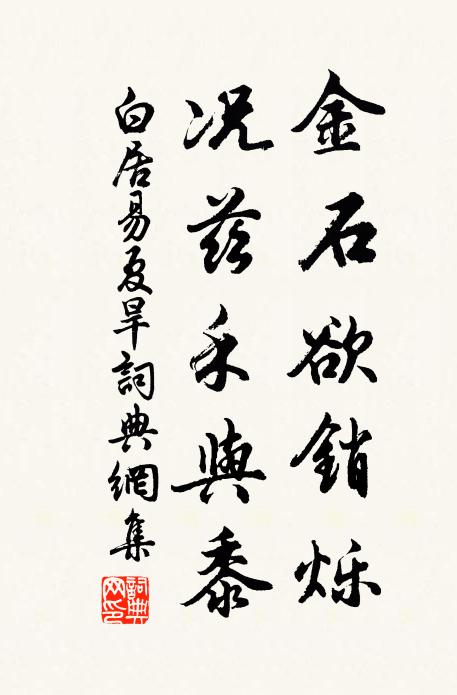 金石欲銷烁
况茲禾與黍
白居易夏旱詞典網集
詞典网印